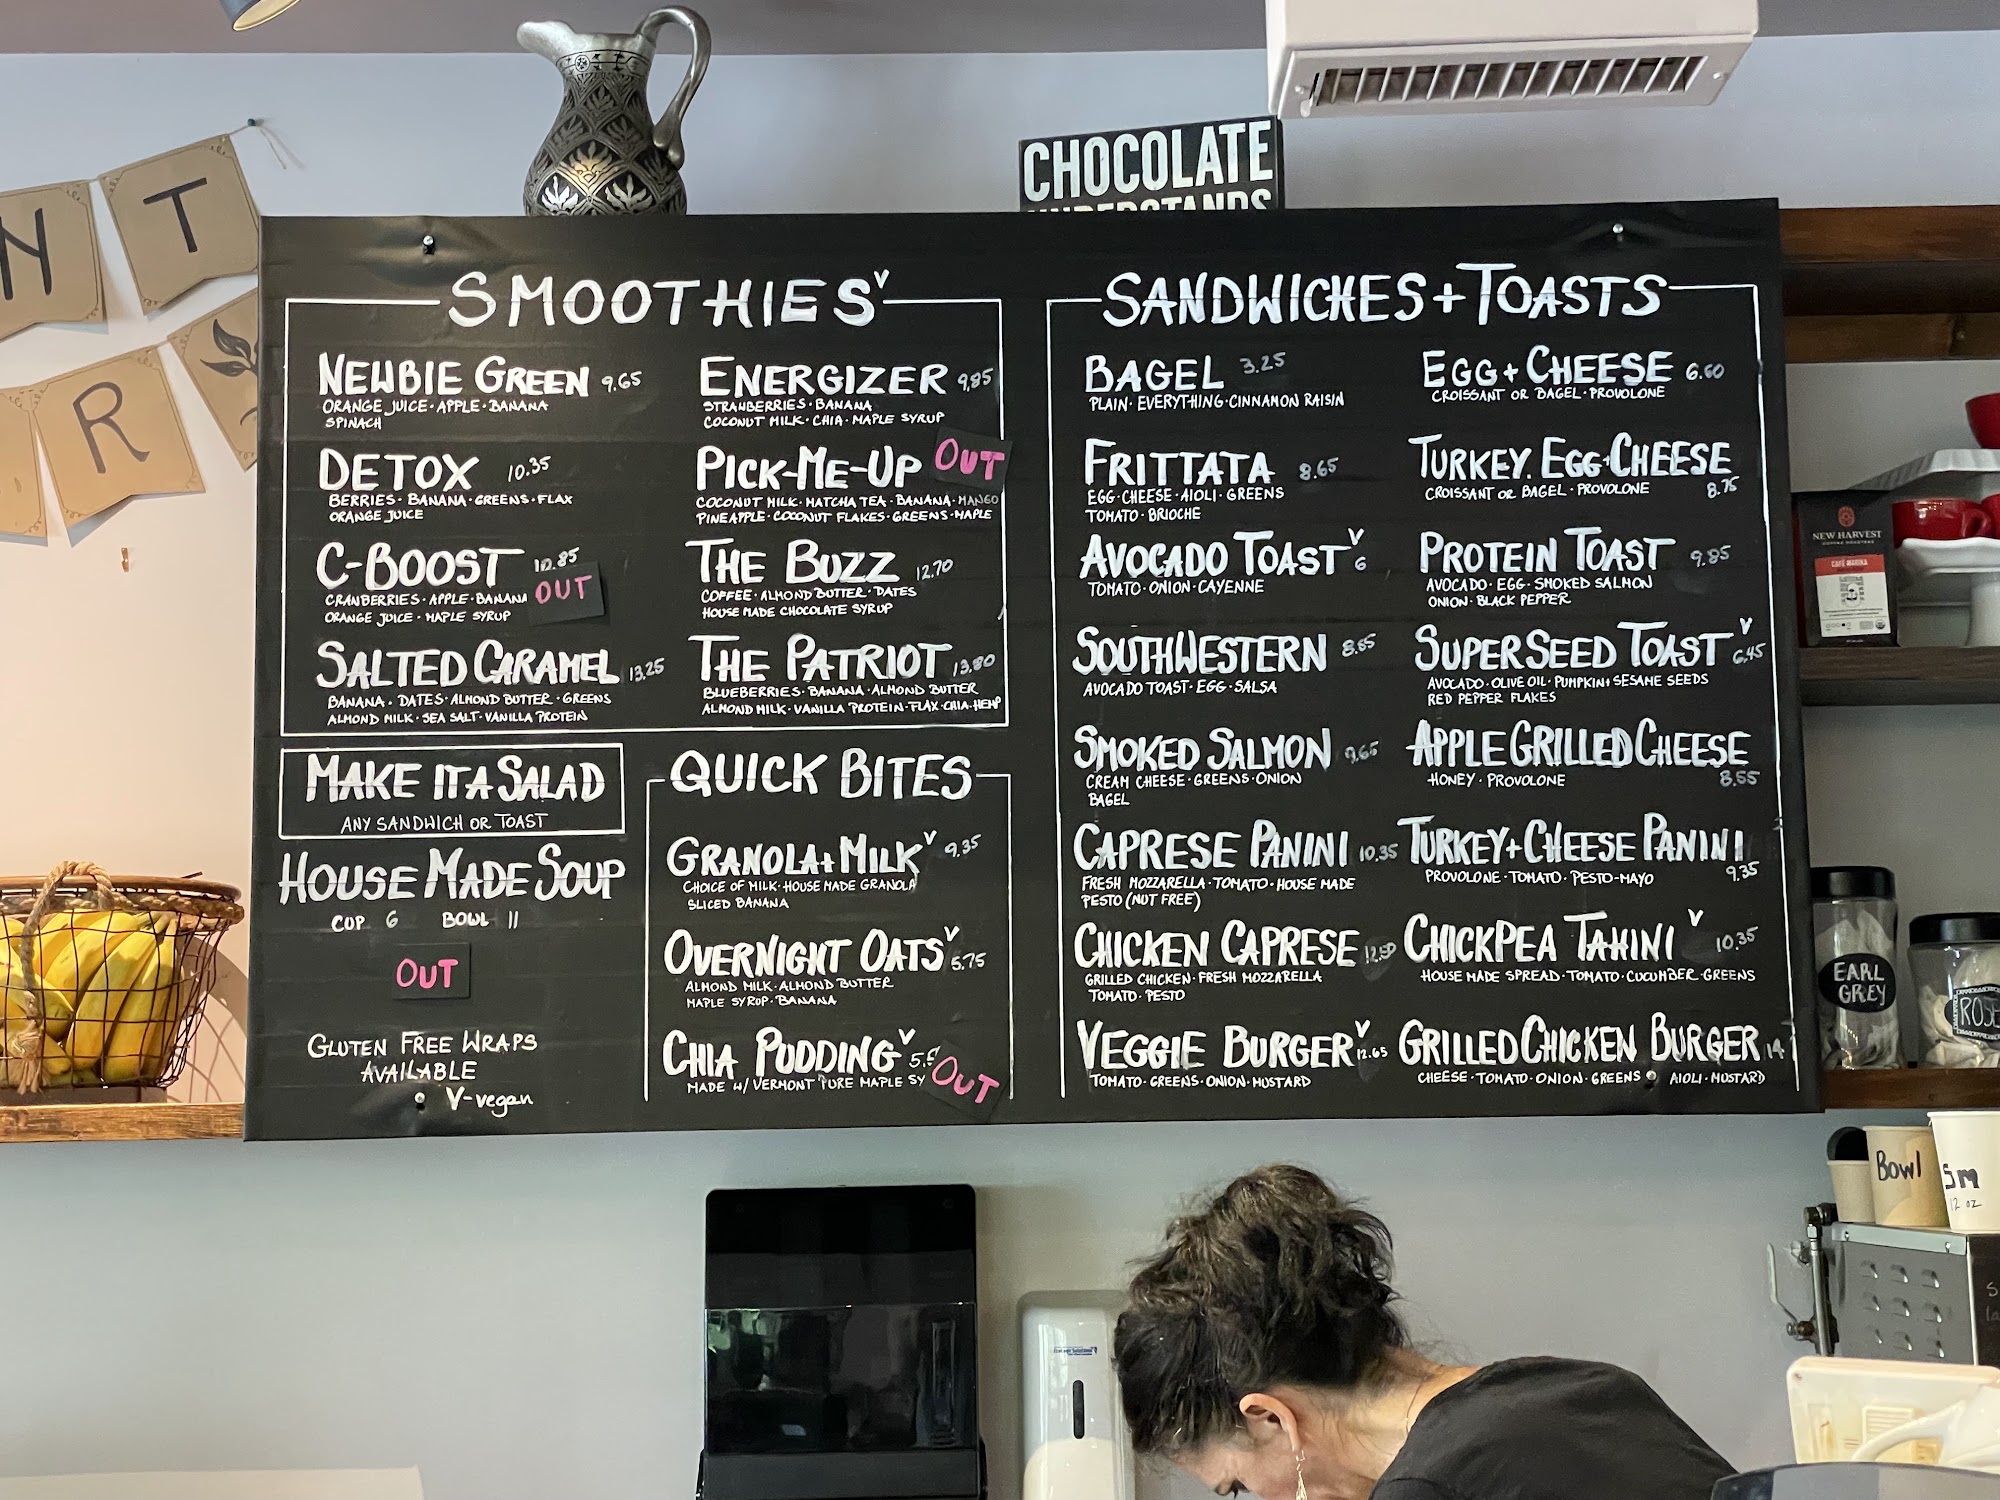 NT
R
CHOCOLATE
UNDERSTANDS
SMOOTHIES V
NEWBIE GREEN 9.65
ORANGE JUICE · APPLE · BANANA
SPINACH
DETOX 10.35
BERRIES · BANANA · GREENS · FLAX
ORANGE JUICE
C-BOOST 10.85
CRANBERRIES · APPLE · BANANA
ORANGE JUICE · MAPLE SYRUP
OUT
SALTED CARAMEL 13.25
BANANA · DATES · ALMOND BUTTER · GREENS
ALMOND MILK · SEA SALT · VANILLA PROTEIN
ENERGIZER 9.85
STRAWBERRIES · BANANA
COCONUT MILK · CHIA · MAPLE SYRUP
PICK-ME-UP OUT
COCONUT MILK · MATCHA TEA · BANANA · MANGO
PINEAPPLE · COCONUT FLAKES · GREENS · MAPLE
THE BUZZ 12.70
COFFEE · ALMOND BUTTER · DATES
HOUSE MADE CHOCOLATE SYRUP
THE PATRIOT 13.80
BLUEBERRIES · BANANA · ALMOND BUTTER
ALMOND MILK · VANILLA PROTEIN · FLAX · CHIA · HEMP
MAKE IT A SALAD
ANY SANDWICH OR TOAST
HOUSE MADE SOUP
CUP 6 BOWL 11
OUT
GLUTEN FREE WRAPS
AVAILABLE
V-vegan
QUICK BITES
GRANOLA + MILK V 9.35
CHOICE OF MILK · HOUSE MADE GRANOLA
SLICED BANANA
OVERNIGHT OATS V 5.75
ALMOND MILK · ALMOND BUTTER
MAPLE SYRUP · BANANA
CHIA PUDDING V
MADE W/ VERMONT PURE MAPLE SY
OUT
SANDWICHES + TOASTS
BAGEL 3.25
PLAIN · EVERYTHING · CINNAMON RAISIN
FRITTATA 8.65
EGG · CHEESE · AIOLI · GREENS
TOMATO · BRIOCHE
AVOCADO TOAST V 6
TOMATO · ONION · CAYENNE
SOUTHWESTERN 8.65
AVOCADO TOAST · EGG · SALSA
SMOKED SALMON 9.65
CREAM CHEESE · GREENS · ONION
BAGEL
CAPRESE PANINI 10.35
FRESH MOZZARELLA · TOMATO · HOUSE MADE
PESTO (NUT FREE)
CHICKEN CAPRESE 12.50
GRILLED CHICKEN · FRESH MOZZARELLA
TOMATO · PESTO
VEGGIE BURGER V 12.65
TOMATO · GREENS · ONION · MUSTARD
EGG + CHEESE 6.60
CROISSANT OR BAGEL · PROVOLONE
TURKEY · EGG · CHEESE
CROISSANT OR BAGEL · PROVOLONE 8.75
PROTEIN TOAST 9.85
AVOCADO · EGG · SMOKED SALMON
ONION · BLACK PEPPER
SUPERSEED TOAST V 6.45
AVOCADO · OLIVE OIL · PUMPKIN + SESAME SEEDS
RED PEPPER FLAKES
APPLE GRILLED CHEESE
HONEY · PROVOLONE 8.55
TURKEY + CHEESE PANINI
PROVOLONE · TOMATO · PESTO-MAYO 9.35
CHICKPEA TAHINI V 10.35
HOUSE MADE SPREAD · TOMATO · CUCUMBER · GREENS
GRILLED CHICKEN BURGER 14
CHEESE · TOMATO · ONION · GREENS · AIOLI · MUSTARD
NEW HARVEST
COFFEE ROASTERS
EARL
GREY
ROSE
Bowl
Sm
12 oz